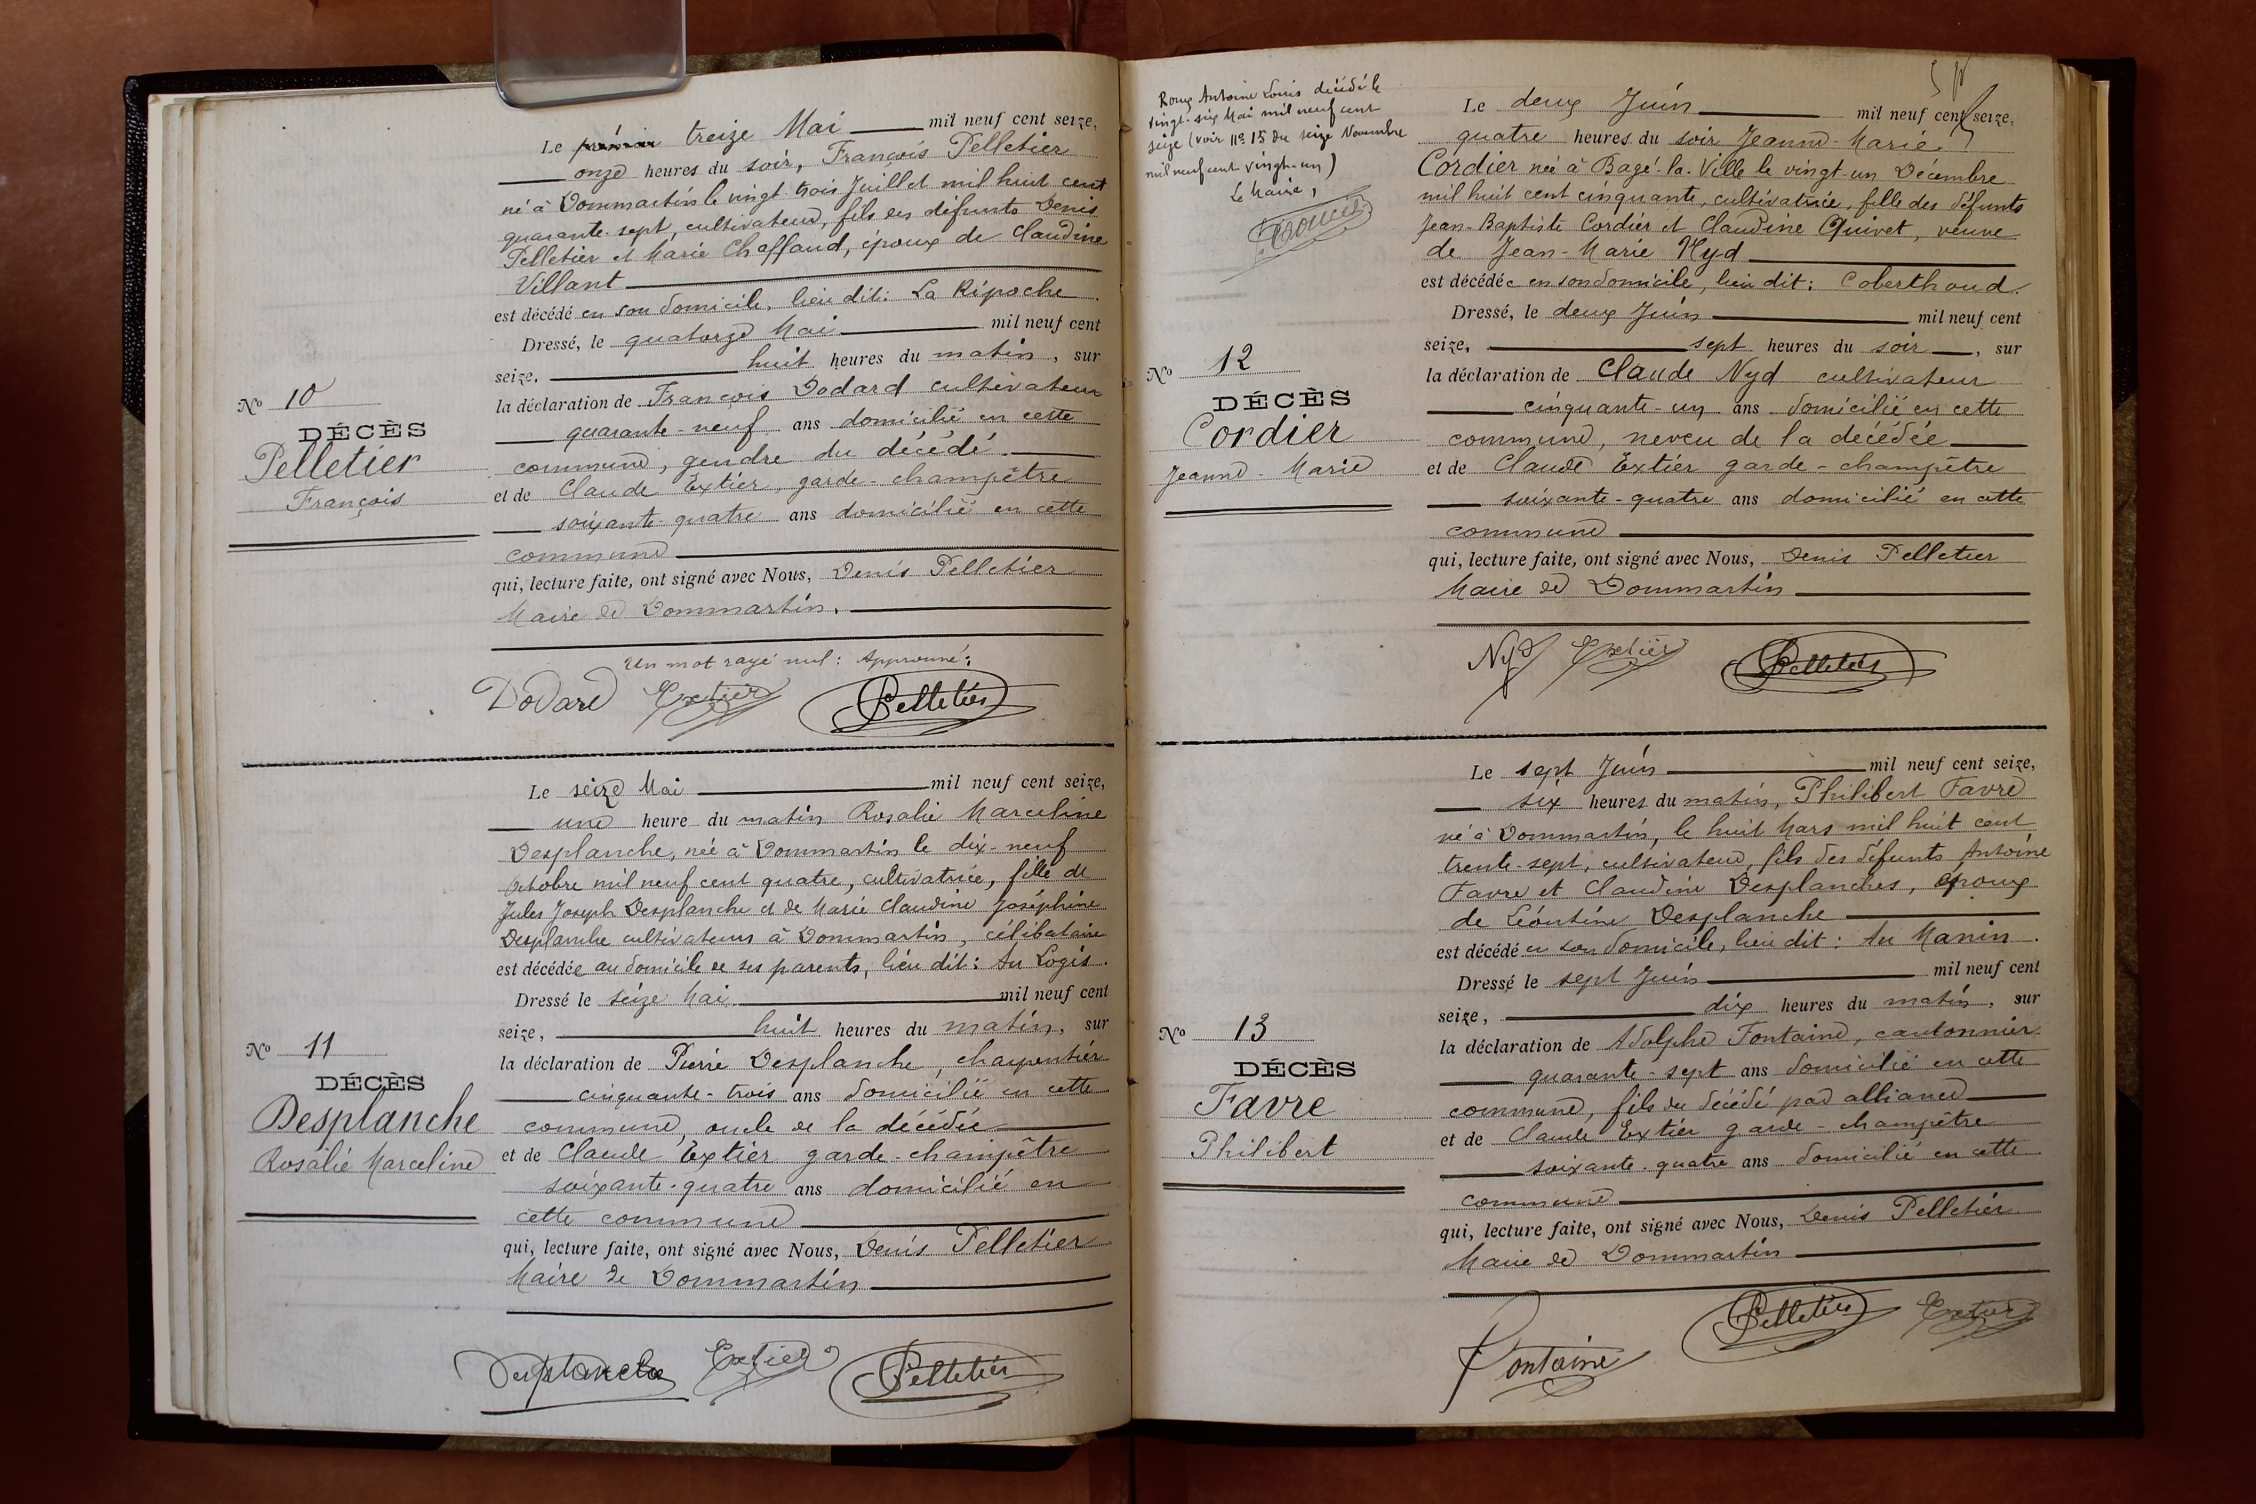 Le premier treize Mai mil neuf cent seize,
onze heures du soir, François Pelletier
né à Dommartin le vingt-trois Juillet mil huit cent
quarante-sept, cultivateur, fils des défunts Denis
Pelletier et Marie Chaffaud, époux de Claudine
Villant
est décédé en son domicile, lieu dit: La Ripoche.
Dressé, le quatorze Mai mil neuf cent
seize, huit heures du matin, sur
la déclaration de François Dodard cultivateur
quarante-neuf ans domicilié en cette
commune, gendre du décédé.
et de Claude Extier, garde-champêtre
soixante-quatre ans domicilié en cette
commune
qui, lecture faite, ont signé avec Nous, Denis Pelletier
Maire de Dommartin.
Un mot rayé nul: Approuvé:
Dodard Extier Pelletier
No 10
DÉCÈS
Pelletier
François
Le seize Mai mil neuf cent seize,
une heure du matin Rosalie Marceline
Desplanche, née à Dommartin le dix-neuf
Octobre mil neuf cent quatre, cultivatrice, fille de
Jules Joseph Desplanche et de Marie Claudine Joséphine
Desplanche cultivateurs à Dommartin, célibataire
est décédée au domicile de ses parents, lieu dit: Au Logis.
Dressé le seize Mai mil neuf cent
seize, huit heures du matin, sur
la déclaration de Pierre Desplanche, charpentier
cinquante-trois ans domicilié en cette
commune, oncle de la décédée
et de Claude Extier garde-champêtre
soixante-quatre ans domicilié en
cette commune
qui, lecture faite, ont signé avec Nous, Denis Pelletier
Maire de Dommartin
Desplanche Extier Pelletier
No 11
DÉCÈS
Desplanche
Rosalie Marceline
Roux Antoine Louis décédé le
vingt-six Mai mil neuf cent
seize (voir No 15 du seize Novembre
mil neuf cent vingt-un)
Le Maire,
Le deux Juin mil neuf cent seize,
quatre heures du soir Jeanne-Marie
Cordier née à Bagé-la-Ville le vingt-un Décembre
mil huit cent cinquante, cultivatrice, fille des défunts
Jean-Baptiste Cordier et Claudine Quivet, veuve
de Jean-Marie Nyd
est décédée en son domicile, lieu dit: Coberthoud.
Dressé, le deux Juin mil neuf cent
seize, sept heures du soir, sur
la déclaration de Claude Nyd cultivateur
cinquante-un ans domicilié en cette
commune, neveu de la décédée
et de Claude Extier garde-champêtre
soixante-quatre ans domicilié en cette
commune
qui, lecture faite, ont signé avec Nous, Denis Pelletier
Maire de Dommartin
Nyd Extier Pelletier
No 12
DÉCÈS
Cordier
Jeanne-Marie
Le sept Juin mil neuf cent seize,
six heures du matin, Philibert Favre
né à Dommartin, le huit Mars mil huit cent
trente-sept, cultivateur, fils des défunts Antoine
Favre et Claudine Desplanches, époux
de Léontine Desplanche
est décédé en son domicile, lieu dit: Au Manin.
Dressé le sept Juin mil neuf cent
seize, dix heures du matin, sur
la déclaration de Adolphe Fontaine, cantonnier
quarante-sept ans domicilié en cette
commune, fils du décédé par alliance
et de Claude Extier garde-champêtre
soixante-quatre ans domicilié en cette
commune
qui, lecture faite, ont signé avec Nous, Denis Pelletier
Maire de Dommartin
Fontaine Pelletier Extier
No 13
DÉCÈS
Favre
Philibert